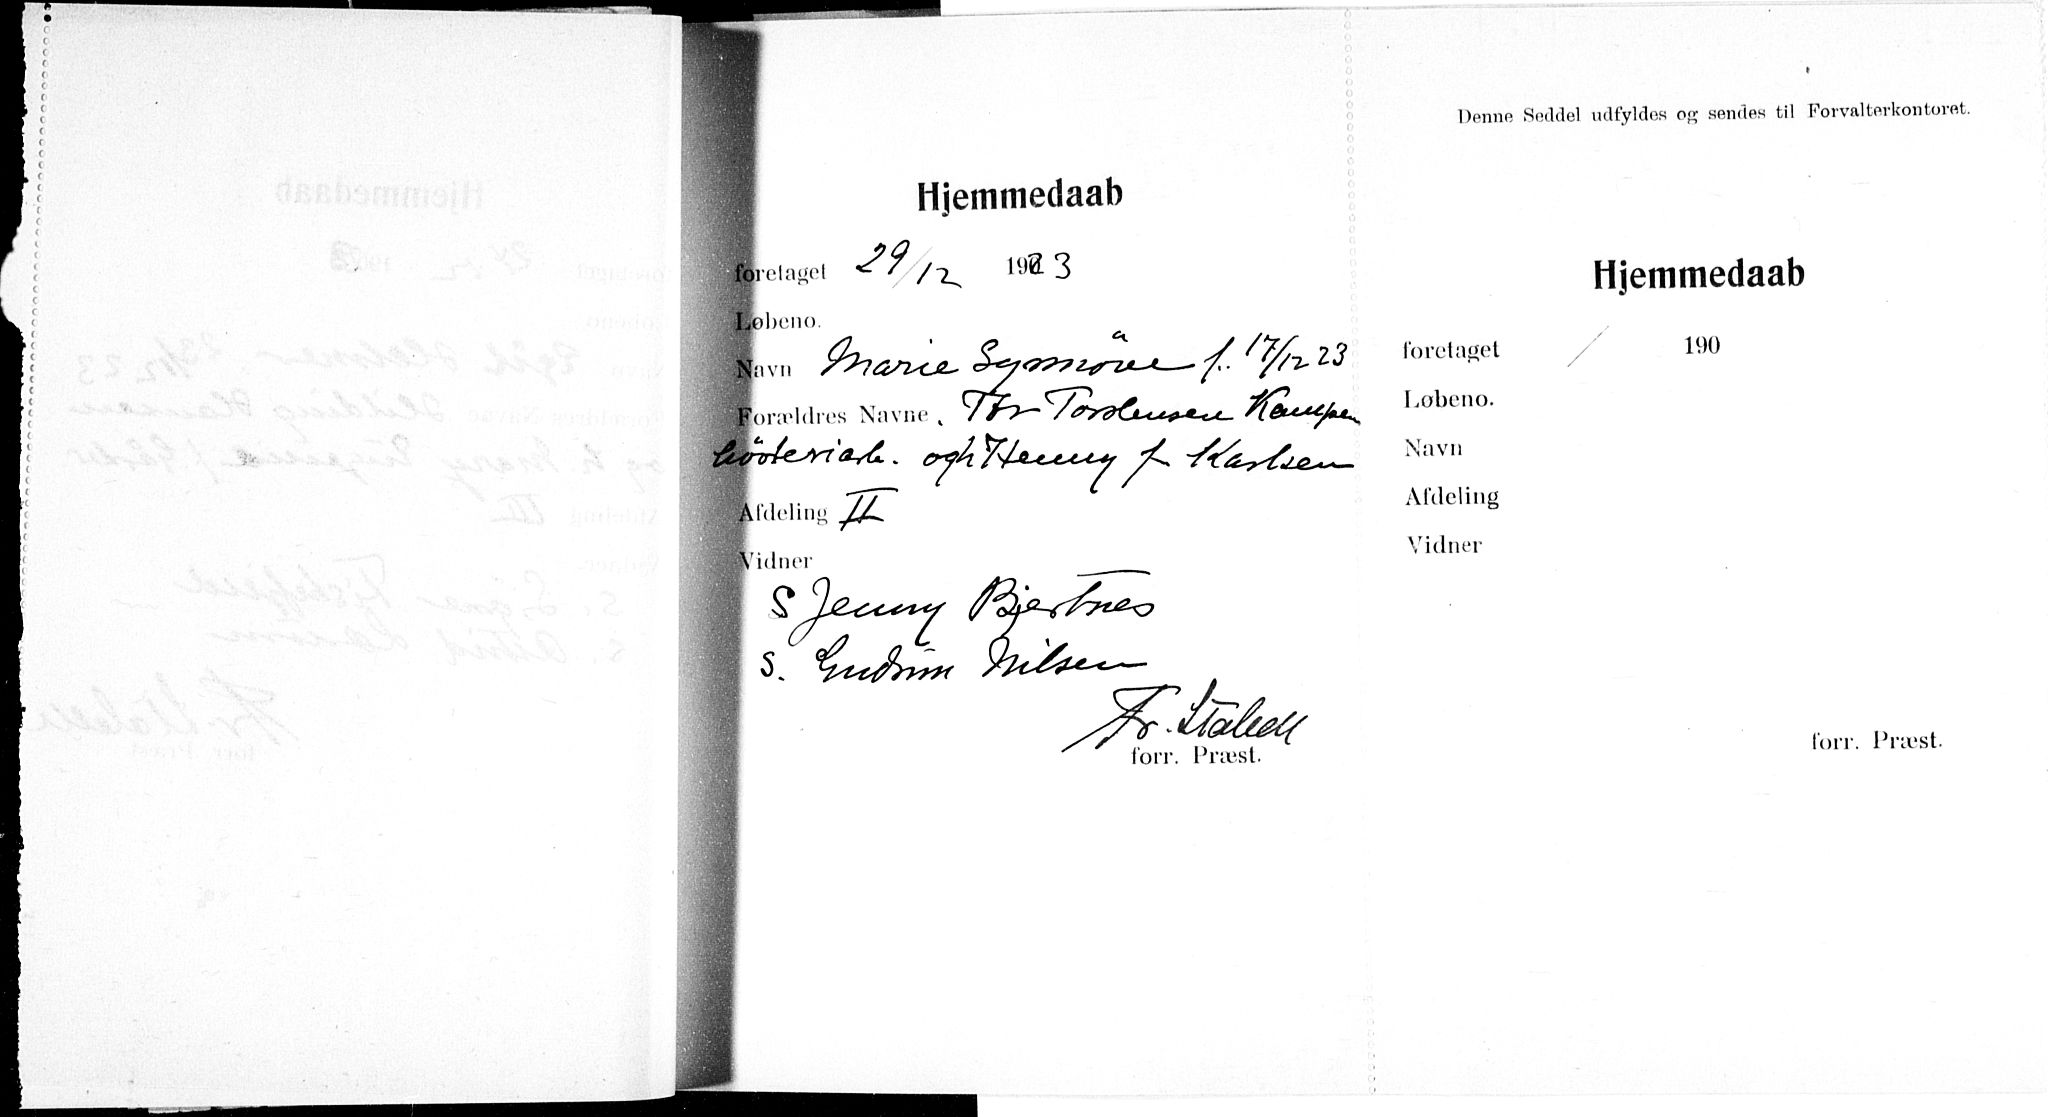 Hjemmedaab
foretaget 29/12 1923
Løbeno.
Navn Marie Synnöve f. 17/12 23
Forældres Navne. Thr Torstensen Kampen
og h Henny f. Karlsen
Afdeling II
Vidner
S Jenny Bjertnes
S. Gudrun Nilsen
Fr.
forr. Præst.
Denne Seddel udfyldes og sendes til Forvalterkontoret.
Hjemmedaab
foretaget / 190
Løbeno.
Navn
Afdeling
Vidner
forr. Præst.